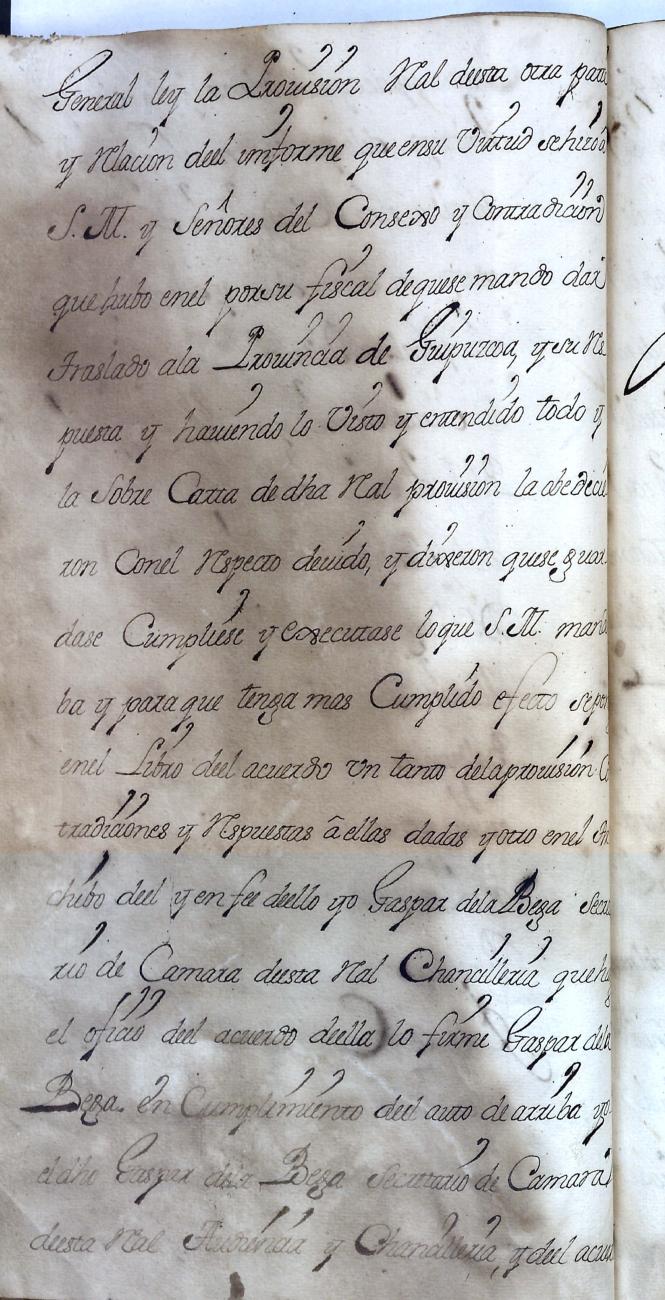 General ley la Provision Rl deesta otra part
y Relacion deel imforme que ensu Virtud sehizo a
S. M. y Señores del Consexo y Contradicion
que hubo enel porsu fiscal dequese mando dar
traslado ala Provincia de Guipuzcoa, y su Res
puesta y haviendo lo Visto y entendido todo y
la Sobre Carta de dha Real provision la obedecie
ron Conel Respecto devido, y dixeron quese guar
dase Cumpliese y executase loque S. M. manda
ba y paraque tenga mas Cumplido efecto sepon
enel Libro deel acuerdo vn tanto delaprovision Co
tradiciones y Respuestas â ellas dadas yotro enel Ar
chibo deel y en fee deello yo Gaspar dela Bega Secr
rio de Camara deesta Real Chancilleria que ha
el oficio deel acuerdo deella lo firme Gaspar dela
Bega. en Cumplimiento deel auto de arriba yo
el dho Gaspar dela Bega Secretario de Camara
deesta Real Audiencia y Chancilleria, y deel acue